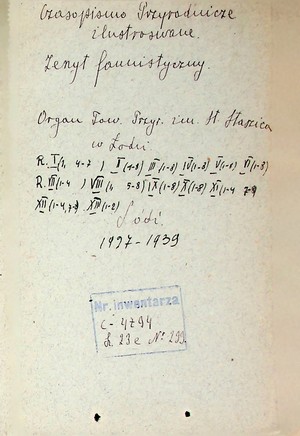 Czasopismo Przyrodnicze
ilustrowane.
Zeszyt faunistyczny.
Organ Tow. Przyr. im. St. Staszica
w Łodzi.
R. I (1, 4-7) II (1-8) III (1-8) IV (1-8) V (1-8) VI (1-8)
R. VII (1-4) VIII (1, 5-8) IX (1-8) X (1-8) XI (1-4
XII (1-4, 7-8) XIII (1-2)
Łódź.
1927-1939
Nr. inwentarza
C-4794
L. 23 e No 299.